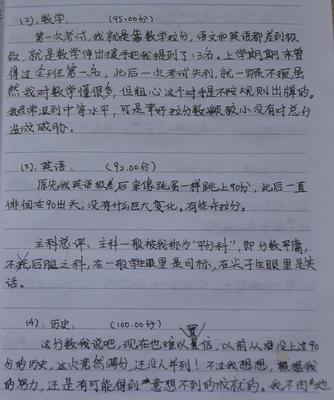 (2). 数学. (95.00分)
第一次考试, 我就是靠数学拉分, 语文和英语都差到极
数, 就是数学伸出援手把我提到了13名。上学期期末曾
得过全班第一名, 此后一次考试失利, 就一蹶不振虽
然我对数学懂很多, 但粗心这个对手是不按规则出牌的。
我经常退到中等水平, 可是幸好拉分数额较小没有对总分
造成威胁。
(3). 英语: (92.00分)
原先我英语极差后来像跳蚤一样跳上90分, 此后一直
徘徊在90出头。没有什么巨大变化。有些许拉分。
主科总评: 主科一般被我称为"平分科", 即分数平庸,
不拔后腿之科, 在一般学生眼里是目标, 在尖子生眼里是笑
话。
(4): 历史: (100.00分)
这分数我说吧, 现在也难以置信, 以前从没上过90
分的历史, 这次竟然满分, 还没人并列! 不过我想想, 根据我
的努力, 还是有可能得到意想不到的成就的。我不由地